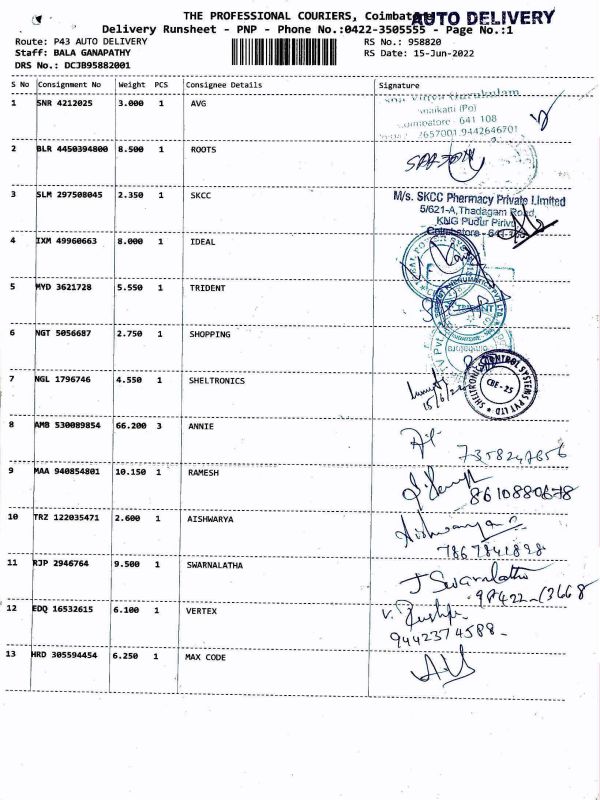 THE PROFESSIONAL COURIERS, Coimbatore
AUTO DELIVERY
Delivery Runsheet - PNP - Phone No.:0422-3505555 - Page No.:1
Route: P43 AUTO DELIVERY RS No.: 958820
Staff: BALA GANAPATHY RS Date: 15-Jun-2022
DRS No.: DCJB95882001
S No Consignment No Weight PCS Consignee Details Signature
1 SNR 4212025 3.000 1 AVG
(Po)
641 108
2657001.9442646701
2 BLR 4450394800 8.500 1 ROOTS
3 SLM 297508045 2.350 1 SKCC
M/s. SKCC Pharmacy Private Limited
5/621-A, Thadagam Road,
KNG Pudur Pirivu
Coimbatore - 641
4 IXM 49960663 8.000 1 IDEAL
5 MYD 3621728 5.550 1 TRIDENT
TRIDENT
6 NGT 5056687 2.750 1 SHOPPING
7 NGL 1796746 4.550 1 SHELTRONICS
CONTROL SYSTEMS PVT LTD
CBE - 25
8 AMB 530089854 66.200 3 ANNIE
9 MAA 940854801 10.150 1 RAMESH
8610880678
10 TRZ 122035471 2.600 1 AISHWARYA
Aishwarya
7867841828
11 RJP 2946764 9.500 1 SWARNALATHA
J Swarnalatha
12 EDQ 16532615 6.100 1 VERTEX
9442374588-
13 HRD 305594454 6.250 1 MAX CODE